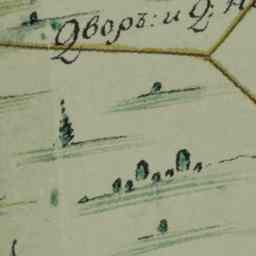 Дворъ: и Д: н